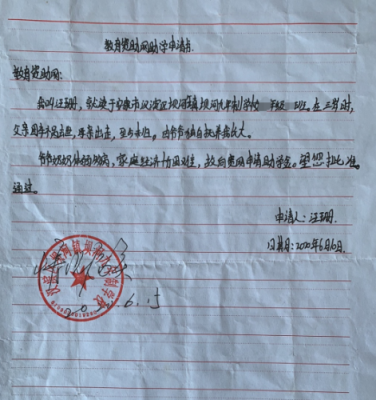 教育资助网助学申请书
教育资助网:
我叫汪珊,就读于安康市汉滨区坝河镇坝河九年制学校 年级 班。在三岁时,
父亲因车祸去世,母亲出走,至今未归。由爷爷独自抚养我长大。
爷爷奶奶体弱多病,家庭经济十分困难,故向贵网申请助学金。望您批准。
通过。
申请人:汪珊
日期:2020年6月6日
6.15